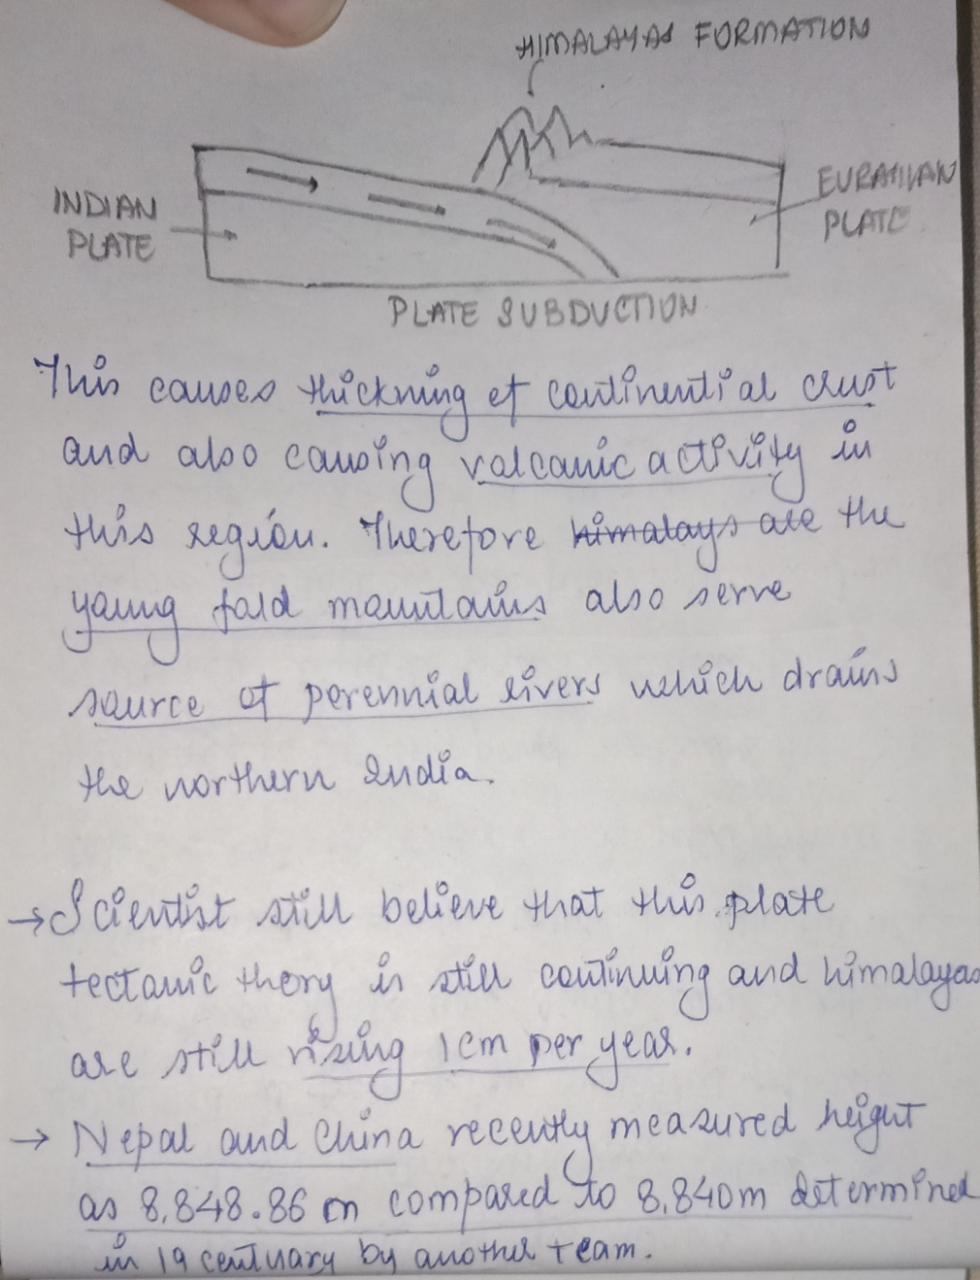 HIMALAYAS FORMATION
INDIAN
PLATE
EURATIVAN
PLATE
PLATE SUBDUCTION
This causes thickning of continential crust
and also causing valcanic activity in
this region. Therefore himalays are the
young fold mountains also serve
source of perennial rivers which drains
the northern India.
→ Scientist still believe that this plate
tectonic thery is still continuing and himalayas
are still rising 1cm per year.
→ Nepal and China recently measured height
as 8,848.86 m compared to 8,840m determined
in 19 centuary by another team.